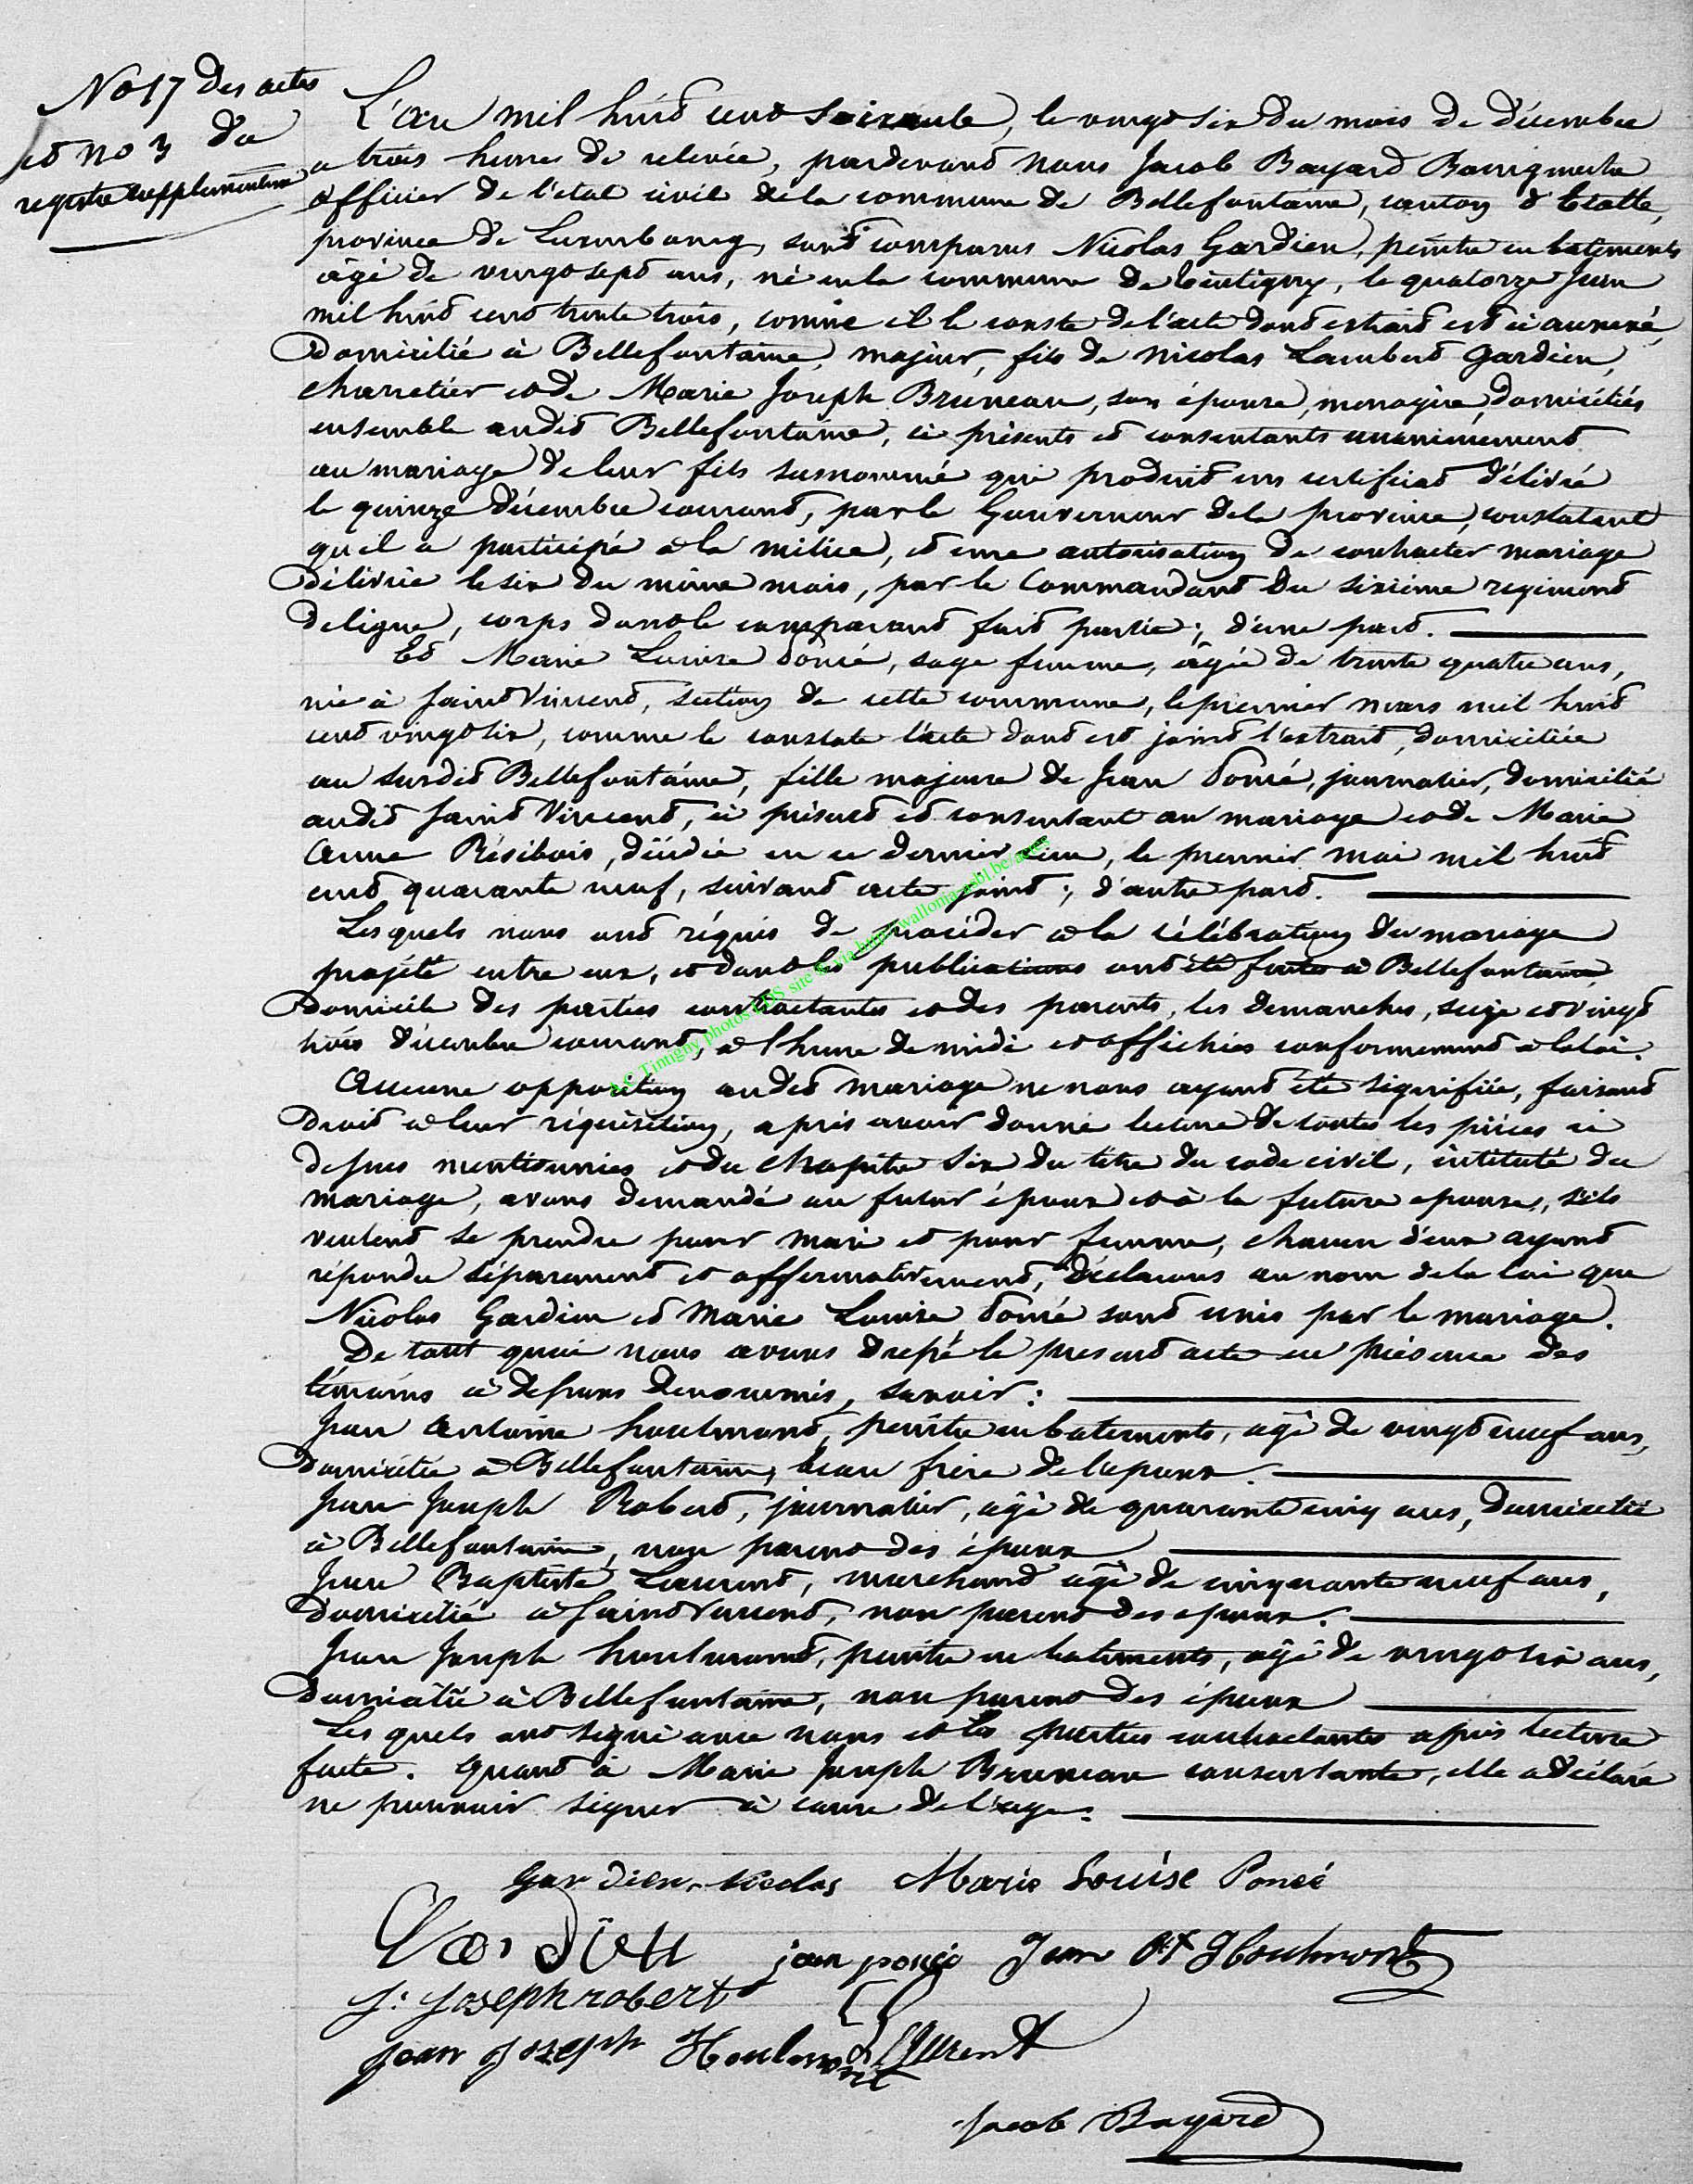 No 17 des actes
et no 3 du
registre supplementaire
L'an mil huit cent soixante, le vingt six du mois de décembre
a trois heures de relevée, pardevant nous Jacob Bayard Bourgmestre
officier de l'état civil de la commune de Bellefontaine, canton d'Etalle,
province de Luxembourg, sont comparus Nicolas Gardien, peintre en batiments
âgé de vingt sept ans, né en la commune de Tintigny, le quatorze Juin
mil huit cent trente trois, comme il le conste de l'acte dont extrait est ci annexé,
Domicilié à Bellefontaine, majeur, fils de Nicolas Lambert Gardien,
charretier et de Marie Joseph Bruneau, son épouse, menagère, domiciliés
ensemble audit Bellefontaine, ci présents et consentants unanimement
au mariage de leur fils susnommé qui produit un certificat délivré
le quinze décembre courant, par le Gouverneur de la province, constatant
qu'il a participé à la milice, et une autorisation de contracter mariage
délivrée le six du même mois, par le Commandant du sixième regiment
de ligne, corps dont le comparant fait partie; d'une part.
Et Marie Louise Poncé, sage femme, âgée de trente quatre ans,
née à Saint Vincent, section de cette commune, le premier mars mil huit
cent vingt six, comme le constate l'acte dont est joint l'extrait, domiciliée
au susdit Bellefontaine, fille majeure de Jean Poncé, journalier, domicilié
audit Saint Vincent, ci présent et consentant au mariage et de Marie
Anne Résibois, décédée en ce dernier lieu, le premier mai mil huit
cent quarante neuf, suivant acte joint; d'autre part.
Les quels nous ont réquis de procéder à la célébration du mariage
projété entre eux, et dont les publications ont été faites à Bellefontaine,
Domicile des parties contractantes et des parents, les dimanches, seize et vingt
trois décembre courant, à l'heure de midi et affichées conformement à la loi.
Aucune opposition audit mariage ne nous ayant été signifiée, faisant
Droit à leur réquisition, après avoir donné lecture de toutes les pièces ci
dessus mentionnées et du chapitre six du titre du code civil, intitulé du
mariage, avons demandé au futur époux et à la future epouse, s'ils
veulent se prendre pour mari et pour femme, chacun d'eux ayant
répondu séparement et affirmativement, déclarons au nom de la loi que
Nicolas Gardien et Marie Louise Poncé sont unis par le mariage.
De tout quoi nous avons dressé le present acte en présence des
témoins ci dessous denommés, savoir:
Jean Antoine Houlmont, peintre en batiments, agé de vingt neuf ans,
Domicilié à Bellefontaine, beau frère de l'epoux.
Jean Joseph Robert, journalier, agé de quarante cinq ans, Domicilié
à Bellefontaine, non parent des époux
Jean Baptiste Laurent, marchand agé de cinquante neuf ans,
Domicilié à Saint Vincent, non parent des epoux.
Jean Joseph Houlmont, peintre en batiments, agé de vingt six ans,
Domicilié à Bellefontaine, non parent des époux
Les quels ont signé avec nous et les parties contractantes après lecture
faite. Quant à Marie Joseph Bruneau consentante, elle a déclaré
ne pouvoir signer à cause de l'age.
Gardien Nicolas Marie Louise Poncé
Gardien jean poncé Jean At Houlmont
J. Joseph robert
jean joseph Houlmont Laurent
Jacob Bayard